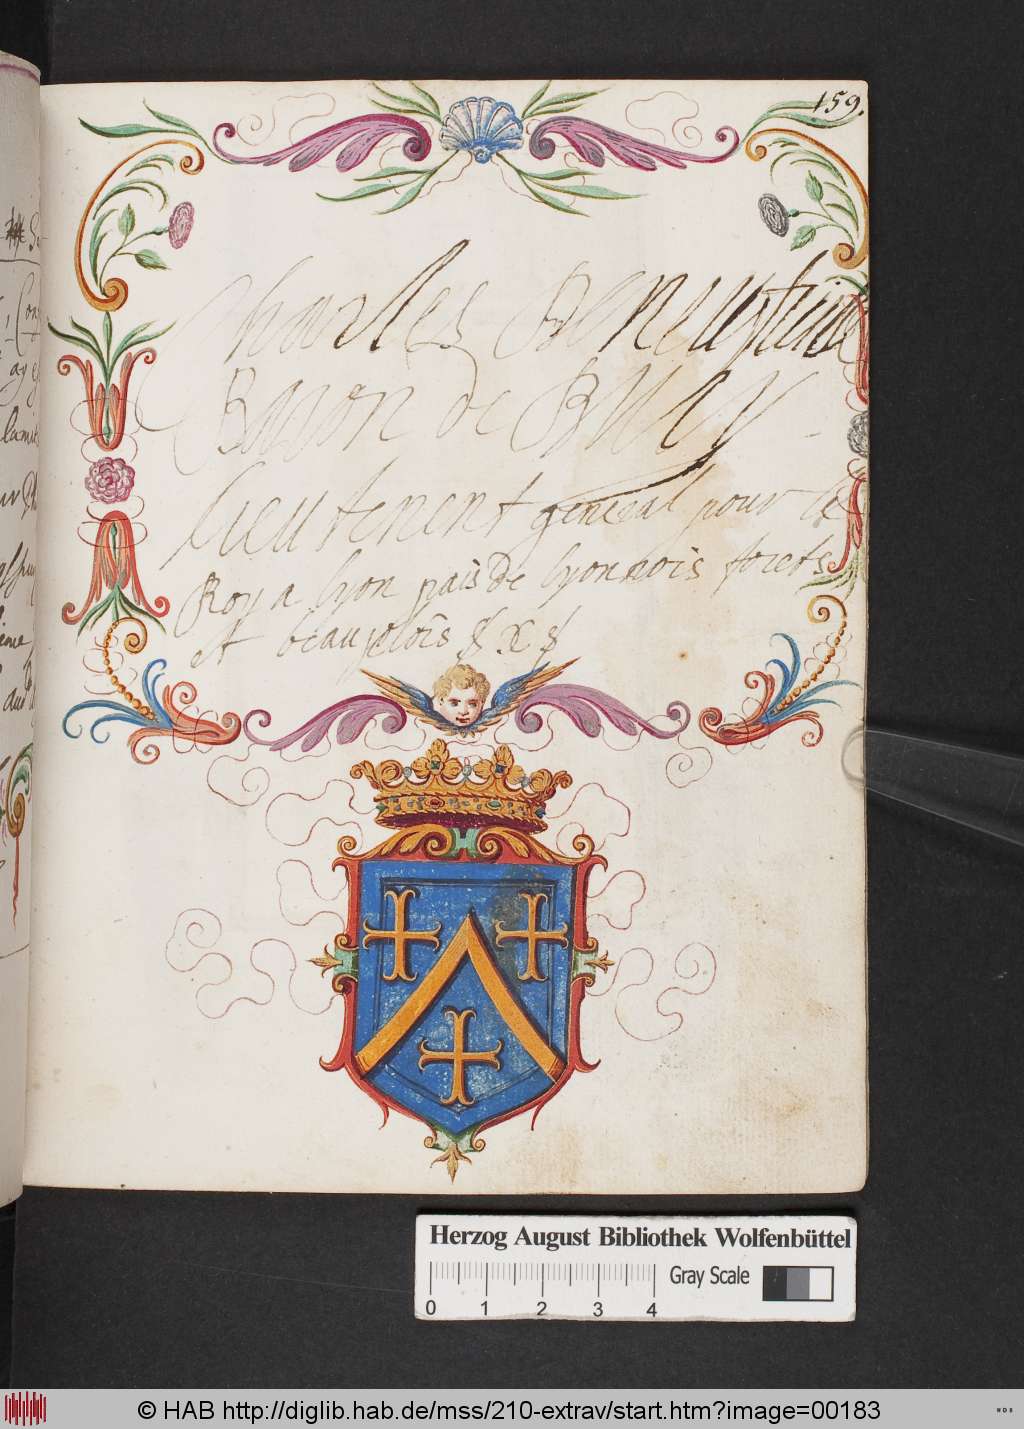 159.
Charles
Baron de
lieutenent general pour le
Roy a lyon pais de lyonnois forets
et beaujolois
Herzog August Bibliothek Wolfenbüttel
Gray Scale
0 1 2 3 4
© HAB http://diglib.hab.de/mss/210-extrav/start.htm?image=00183